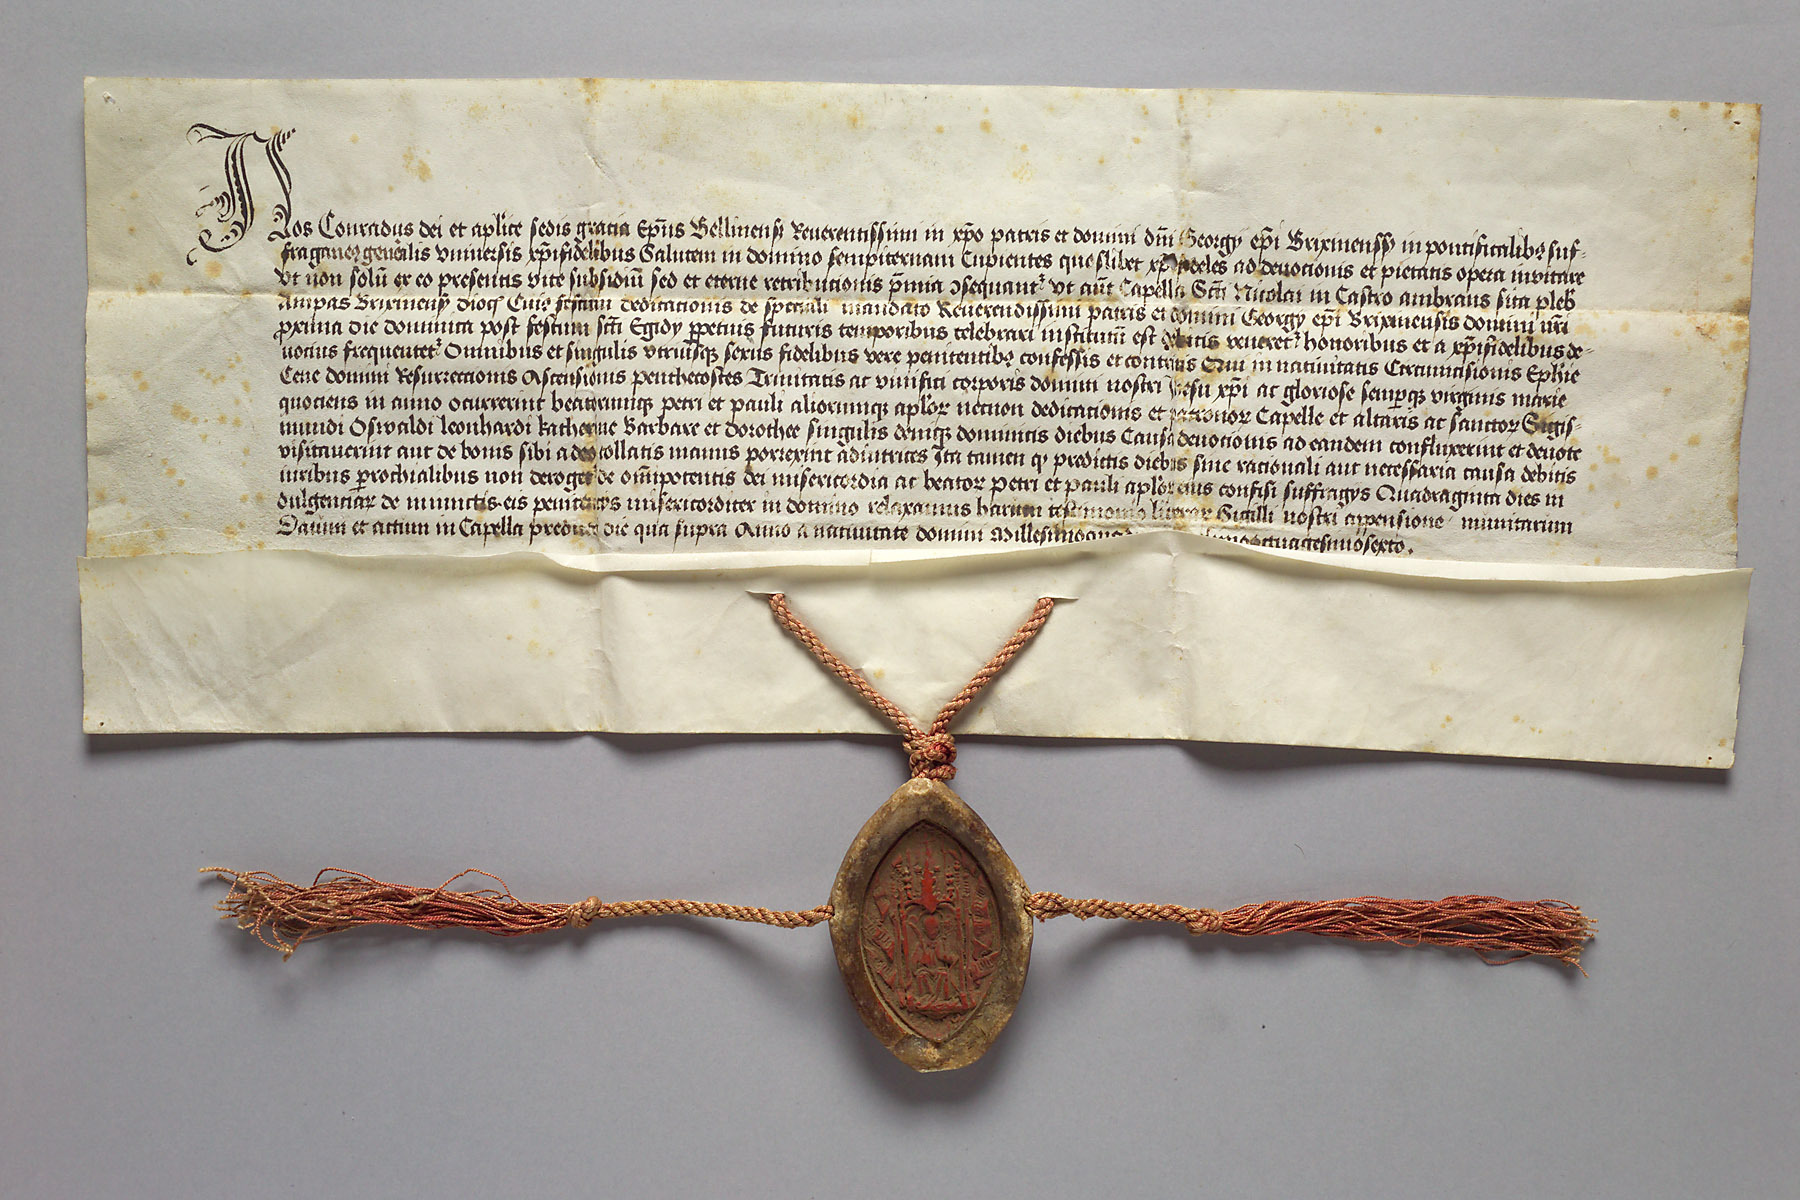 Nos Conradus dei et aplice sedis gracia Epūs Bellinensꝭ Reverentissimi in xp̄o patris et domini dn̄i Georgy ep̄i Brixinenssꝭ in pontificalibꝫ suf-
fraganeꝫ gen̄alis vniversis xp̄ifidelibus Salutem in domino sempiternam Cupientes quoslibet xp̄ifideles ad devocionis et pietatis opera invitare
vt non solū ex eo presentis vite subsidiū sed et eterne retribucionis p̄mia ɔsequant᷑ vt aūt Capella Scti Nicolai in Castro ambrans sita pleb
Ampas Brixinensꝭ dioc̄ Cui᷒ festum dedicacionis de speciali mandato Reverendissimi patris et domini Georgy ep̄i Brixinensis domini nr̄i
ꝓxima die dominica post festum scti Egidy ꝑpetuis futuris temporibus celebrari institutū est debitis veneret᷑ honoribus et a xp̄ifidelibus de-
uocius frequentet᷑ Omnibus et singulis vtriusqꝫ sexus fidelibus vere penitentibꝫ confessis et contritis Qui in nativitatis Circumcisionis Ephie
Cene domini Resurrectionis Ascensionis penthecostes Trinitatis ac vivifici corporis domini nostri Jhesu xp̄i ac gloriose semperqꝫ virginis marie
quociens in anno ocurrerint beatorumqꝫ petri et pauli aliorumqꝫ aplor̄ necnon dedicacionis et patronor̄ Capelle et altaris ac sanctor̄ Sigis-
mundi Oswaldi leonhardi katherine Barbare et dorothee singulis deniqꝫ dominicis diebus Causa devocionis ad eandem confluxerint et devote
visitaverint aut de bonis sibi a deo collatis manus porrexint adiutrices Ita tamen qꝫ predictis diebus sine racionali aut necessaria causa debitis
iuribus ꝑrochialibus non deroget᷑ de om̄ipotentis dei misericordia ac beator̄ petri et pauli aplor̄ eius confisi suffragys Quadraginta dies in
dulgenciar̄ de iniunctis eis penitencys misericorditer in domino relaxamus harum testimonio litterar̄ Sigilli nostri appensione munitarum
Datum et actum in Capella predicta die qua supra Anno a nativitate domini Millesimo octuagesimosexto.